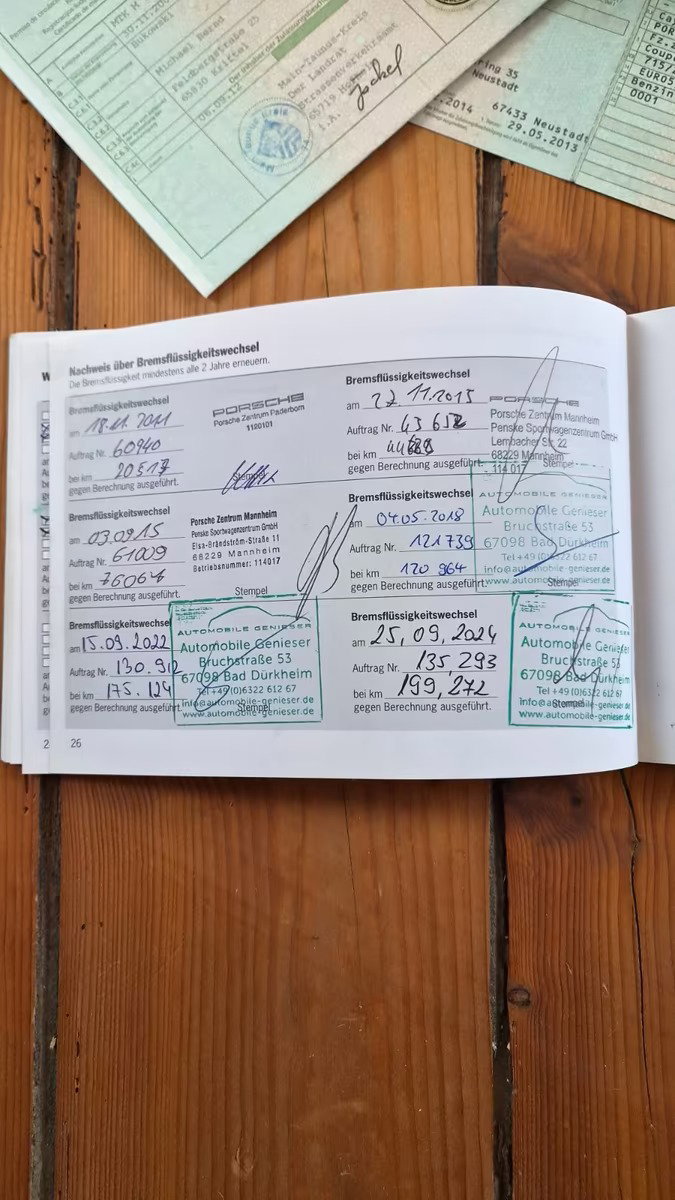 30.11.20
Bukowski
Michael Bernd
Feldbergstraße 25
65830 Kriftel
06.09.12
Main-Taunus-Kreis
Der Landrat
Straßenverkehrsamt
65719
I.A.
C.3.1
C.3.2
C.3.3
C.6.1
C.6.2
C.6.3
C.4c
ring 35
Neustadt
.2014
67433 Neustadt
29.05.2013
Fz.Z
Coupe
715/
EURO5
Benzin
0001
Nachweis über Bremsflüssigkeitswechsel
Die Bremsflüssigkeit mindestens alle 2 Jahre erneuern.
Bremsflüssigkeitswechsel
am 18.11.2011
Auftrag Nr. 60940
bei km 20517
gegen Berechnung ausgeführt.
PORSCHE
Porsche Zentrum Paderborn
1120101
Bremsflüssigkeitswechsel
am 03.09.15
Auftrag Nr. 61009
bei km 76064
gegen Berechnung ausgeführt.
Porsche Zentrum Mannheim
Penske Sportwagenzentrum GmbH
Elsa-Brändström-Straße 11
68229 Mannheim
Betriebsnummer: 114017
Stempel
Bremsflüssigkeitswechsel
am 15.09.2022
Auftrag Nr. 130.912
bei km 175.124
gegen Berechnung ausgeführt.
AUTOMOBILE GENIESER
Automobile Genieser
Bruchstraße 53
67098 Bad Dürkheim
Tel +49 (0)6322 612 67
info@automobile-genieser.de
Stempel
www.automobile-genieser.de
Bremsflüssigkeitswechsel
am 27.11.2015
Auftrag Nr. 43652
bei km
gegen Berechnung ausgeführt.
PORSCHE
Porsche Zentrum Mannheim
Penske Sportwagenzentrum GmbH
Lembacher Str. 22
68229 Mannheim
114 017
Stempel
Bremsflüssigkeitswechsel
am 04.05.2018
Auftrag Nr. 121739
bei km 120 964
gegen Berechnung ausgeführt.
AUTOMOBILE GENIESER
Automobile Genieser
Bruchstraße 53
67098 Bad Dürkheim
Tel +49 (0)6322 612 67
info@automobile-genieser.de
www.automobile-genieser.de
Stempel
Bremsflüssigkeitswechsel
am 25,09,2024
Auftrag Nr. 135.293
bei km 199,272
gegen Berechnung ausgeführt.
AUTOMOBILE GENIESER
Automobile Genieser
Bruchstraße 53
67098 Bad Dürkheim
Tel +49 (0)6322 612 67
Info@automobile-genieser.de
Stempel
www.automobile-genieser.de
26